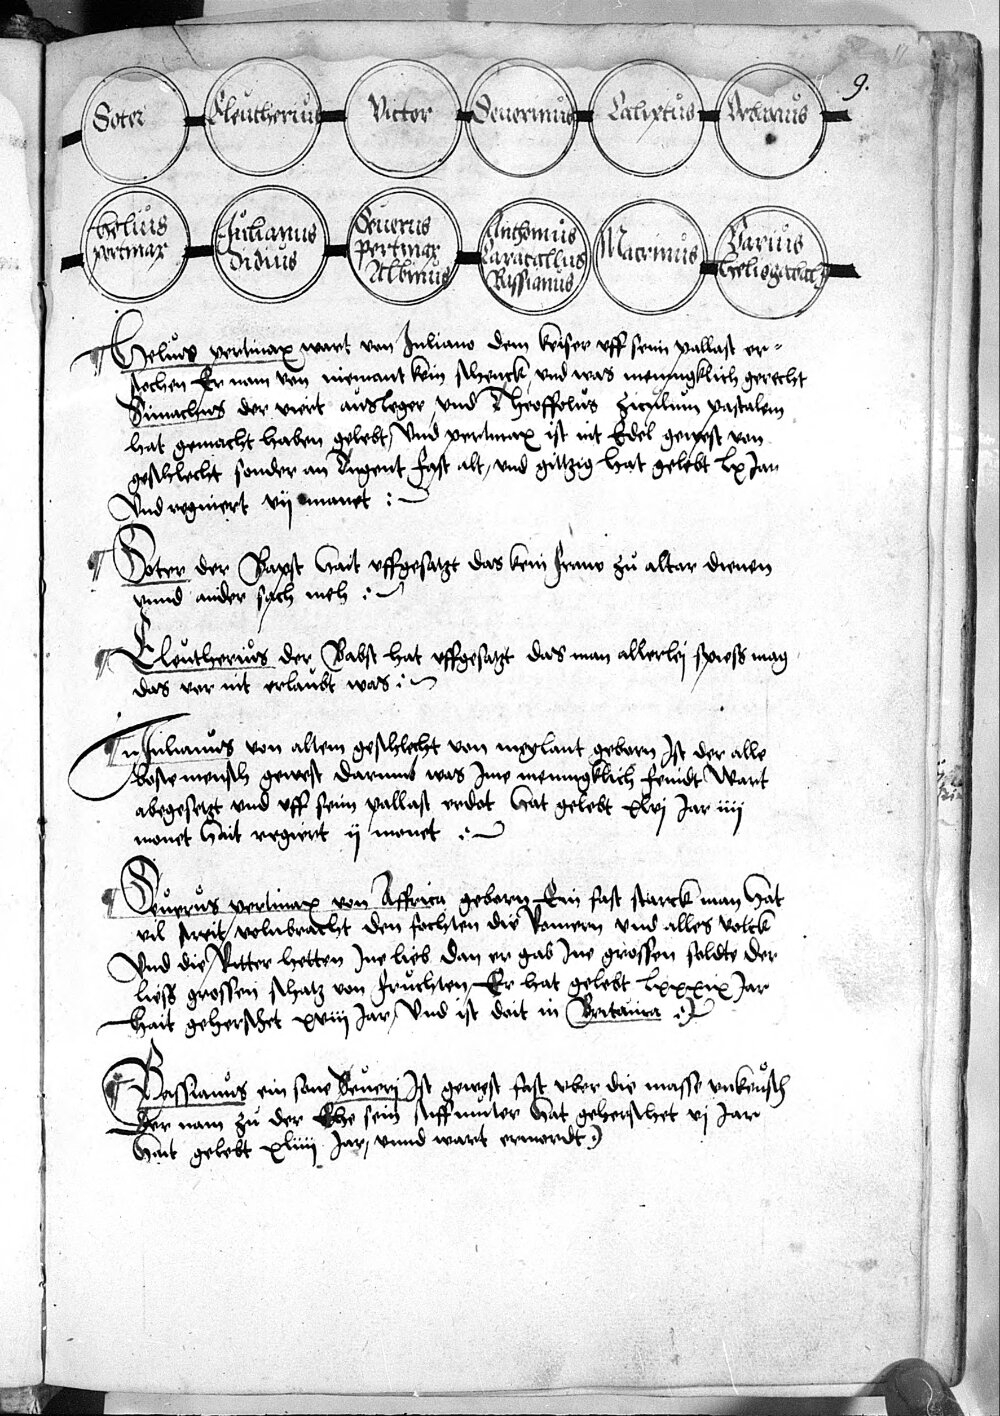 9.
Soter Eleutherius Victor Seuerinus Calixtus Vrbanus
Helius pertinax
Julianus Didius
Seuerus pertinax Albinus
Anthonius Caracallus Bassianus
Macrinus
Varius heliogabal9
Helius pertinax wart von Juliano dem keiser vff seim pallast er-
stochen Er nam von niemant kein schenck vnd was menigklich gerecht
Simachus der viert ausleger vnd Theoffolus Ziculum pascalem
hat gemacht haben gelebt Vnd pertinax ist nit Edel gewest von
geschlecht sonder an Tugent fast alt vnd gittzig hat gelebt lx Jar
Vnd regniert vij manet
Soter der Bapst hait vffgesatzt das kein fraw zu altar dienen
vnnd ander sach meh
Eleutherius der Babst hat vffgesatzt das man allerlej speiss mag
das vor nit erlaubt was
Julianus von altem geschlecht von meylant geborn Ist der alle
boste mensch gewest darumb was Jme menigklich feindt Wart
abgesetzt vnd vff seim pallast erdot hat gelebt xlvj Jar iiij
monet hait regiert ij monet
Seuerus pertinax von Affrica geborn Ein fast starck man hat
vil streit volnbracht den forchten die Romern vnd alles volck
Vnd die Ritter hetten Jne lieb dan er gab Jne grossen solde der
liess grossen schatz von fruchten Er hat gelebt lxxxix Jar
Hait geherschet xviij Jar Vnd ist doit in Britania
Bassianus ein sone Seueri Ist gewest fast vber die masse vnkeusch
Der nam zu der Ehe sein stiffmuter hat geherschet vj Jar
hait gelebt xliiij Jar vnnd wart ermordt